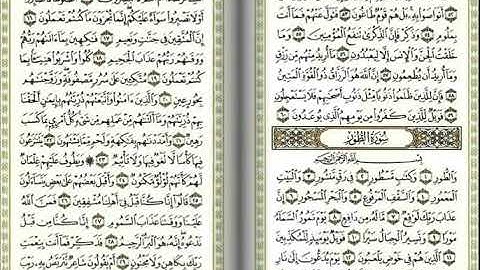 أَتَوَاصَوْا بِهِ بَلْ هُمْ قَوْمٌ طَاغُونَ ٥٣ فَتَوَلَّ عَنْهُمْ فَمَا أَنتَ
بِمَلُومٍ ٥٤ وَذَكِّرْ فَإِنَّ الذِّكْرَىٰ تَنفَعُ الْمُؤْمِنِينَ ٥٥ وَمَا
خَلَقْتُ الْجِنَّ وَالْإِنسَ إِلَّا لِيَعْبُدُونِ ٥٦ مَا أُرِيدُ مِنْهُم مِّن رِّزْقٍ
وَمَا أُرِيدُ أَن يُطْعِمُونِ ٥٧ إِنَّ اللَّهَ هُوَ الرَّزَّاقُ ذُو الْقُوَّةِ الْمَتِينُ
٥٨ فَإِنَّ لِلَّذِينَ ظَلَمُوا ذَنُوبًا مِّثْلَ ذَنُوبِ أَصْحَابِهِمْ فَلَا يَسْتَعْجِلُونِ
٥٩ فَوَيْلٌ لِّلَّذِينَ كَفَرُوا مِن يَوْمِهِمُ الَّذِي يُوعَدُونَ ٦٠
سُورَةُ الطُّورِ
بِسْمِ اللَّهِ الرَّحْمَٰنِ الرَّحِيمِ
وَالطُّورِ ١ وَكِتَابٍ مَّسْطُورٍ ٢ فِي رَقٍّ مَّنشُورٍ ٣ وَالْبَيْتِ
الْمَعْمُورِ ٤ وَالسَّقْفِ الْمَرْفُوعِ ٥ وَالْبَحْرِ الْمَسْجُورِ ٦ إِنَّ
عَذَابَ رَبِّكَ لَوَاقِعٌ ٧ مَّا لَهُ مِن دَافِعٍ ٨ يَوْمَ تَمُورُ السَّمَاءُ
مَوْرًا ٩ وَتَسِيرُ الْجِبَالُ سَيْرًا ١٠ فَوَيْلٌ يَوْمَئِذٍ لِّلْمُكَذِّبِينَ
١١ الَّذِينَ هُمْ فِي خَوْضٍ يَلْعَبُونَ ١٢ يَوْمَ يُدَعُّونَ إِلَىٰ نَارِ
أَوْ لَا تَصْبِرُوا سَوَاءٌ عَلَيْكُمْ إِنَّمَا تُجْزَوْنَ مَا كُنتُمْ تَعْمَلُونَ ١٦
إِنَّ الْمُتَّقِينَ فِي جَنَّاتٍ وَنَعِيمٍ ١٧ فَاكِهِينَ بِمَا آتَاهُمْ رَبُّهُمْ
وَوَقَاهُمْ رَبُّهُمْ عَذَابَ الْجَحِيمِ ١٨ كُلُوا وَاشْرَبُوا هَنِيئًا بِمَا
كُنتُمْ تَعْمَلُونَ ١٩ مُتَّكِئِينَ عَلَىٰ سُرُرٍ مَّصْفُوفَةٍ وَزَوَّجْنَاهُم
بِحُورٍ عِينٍ ٢٠ وَالَّذِينَ آمَنُوا وَاتَّبَعَتْهُمْ ذُرِّيَّتُهُم بِإِيمَانٍ أَلْحَقْنَا
بِهِمْ ذُرِّيَّتَهُمْ وَمَا أَلَتْنَاهُم مِّنْ عَمَلِهِم مِّن شَيْءٍ كُلُّ امْرِئٍ بِمَا كَسَبَ
رَهِينٌ ٢١ وَأَمْدَدْنَاهُم بِفَاكِهَةٍ وَلَحْمٍ مِّمَّا يَشْتَهُونَ ٢٢ يَتَنَازَعُونَ
فِيهَا كَأْسًا لَّا لَغْوٌ فِيهَا وَلَا تَأْثِيمٌ ٢٣ وَيَطُوفُ عَلَيْهِمْ غِلْمَانٌ
لَّهُمْ كَأَنَّهُمْ لُؤْلُؤٌ مَّكْنُونٌ ٢٤ وَأَقْبَلَ بَعْضُهُمْ عَلَىٰ بَعْضٍ يَتَسَاءَلُونَ
٢٥ قَالُوا إِنَّا كُنَّا قَبْلُ فِي أَهْلِنَا مُشْفِقِينَ ٢٦ فَمَنَّ اللَّهُ
عَلَيْنَا وَوَقَانَا عَذَابَ السَّمُومِ ٢٧ إِنَّا كُنَّا مِن قَبْلُ
نَدْعُوهُ إِنَّهُ هُوَ الْبَرُّ الرَّحِيمُ ٢٨ فَذَكِّرْ فَمَا أَنتَ بِنِعْمَتِ
رَبِّكَ بِكَاهِنٍ وَلَا مَجْنُونٍ ٢٩ أَمْ يَقُولُونَ شَاعِرٌ نَّتَرَبَّصُ بِهِ